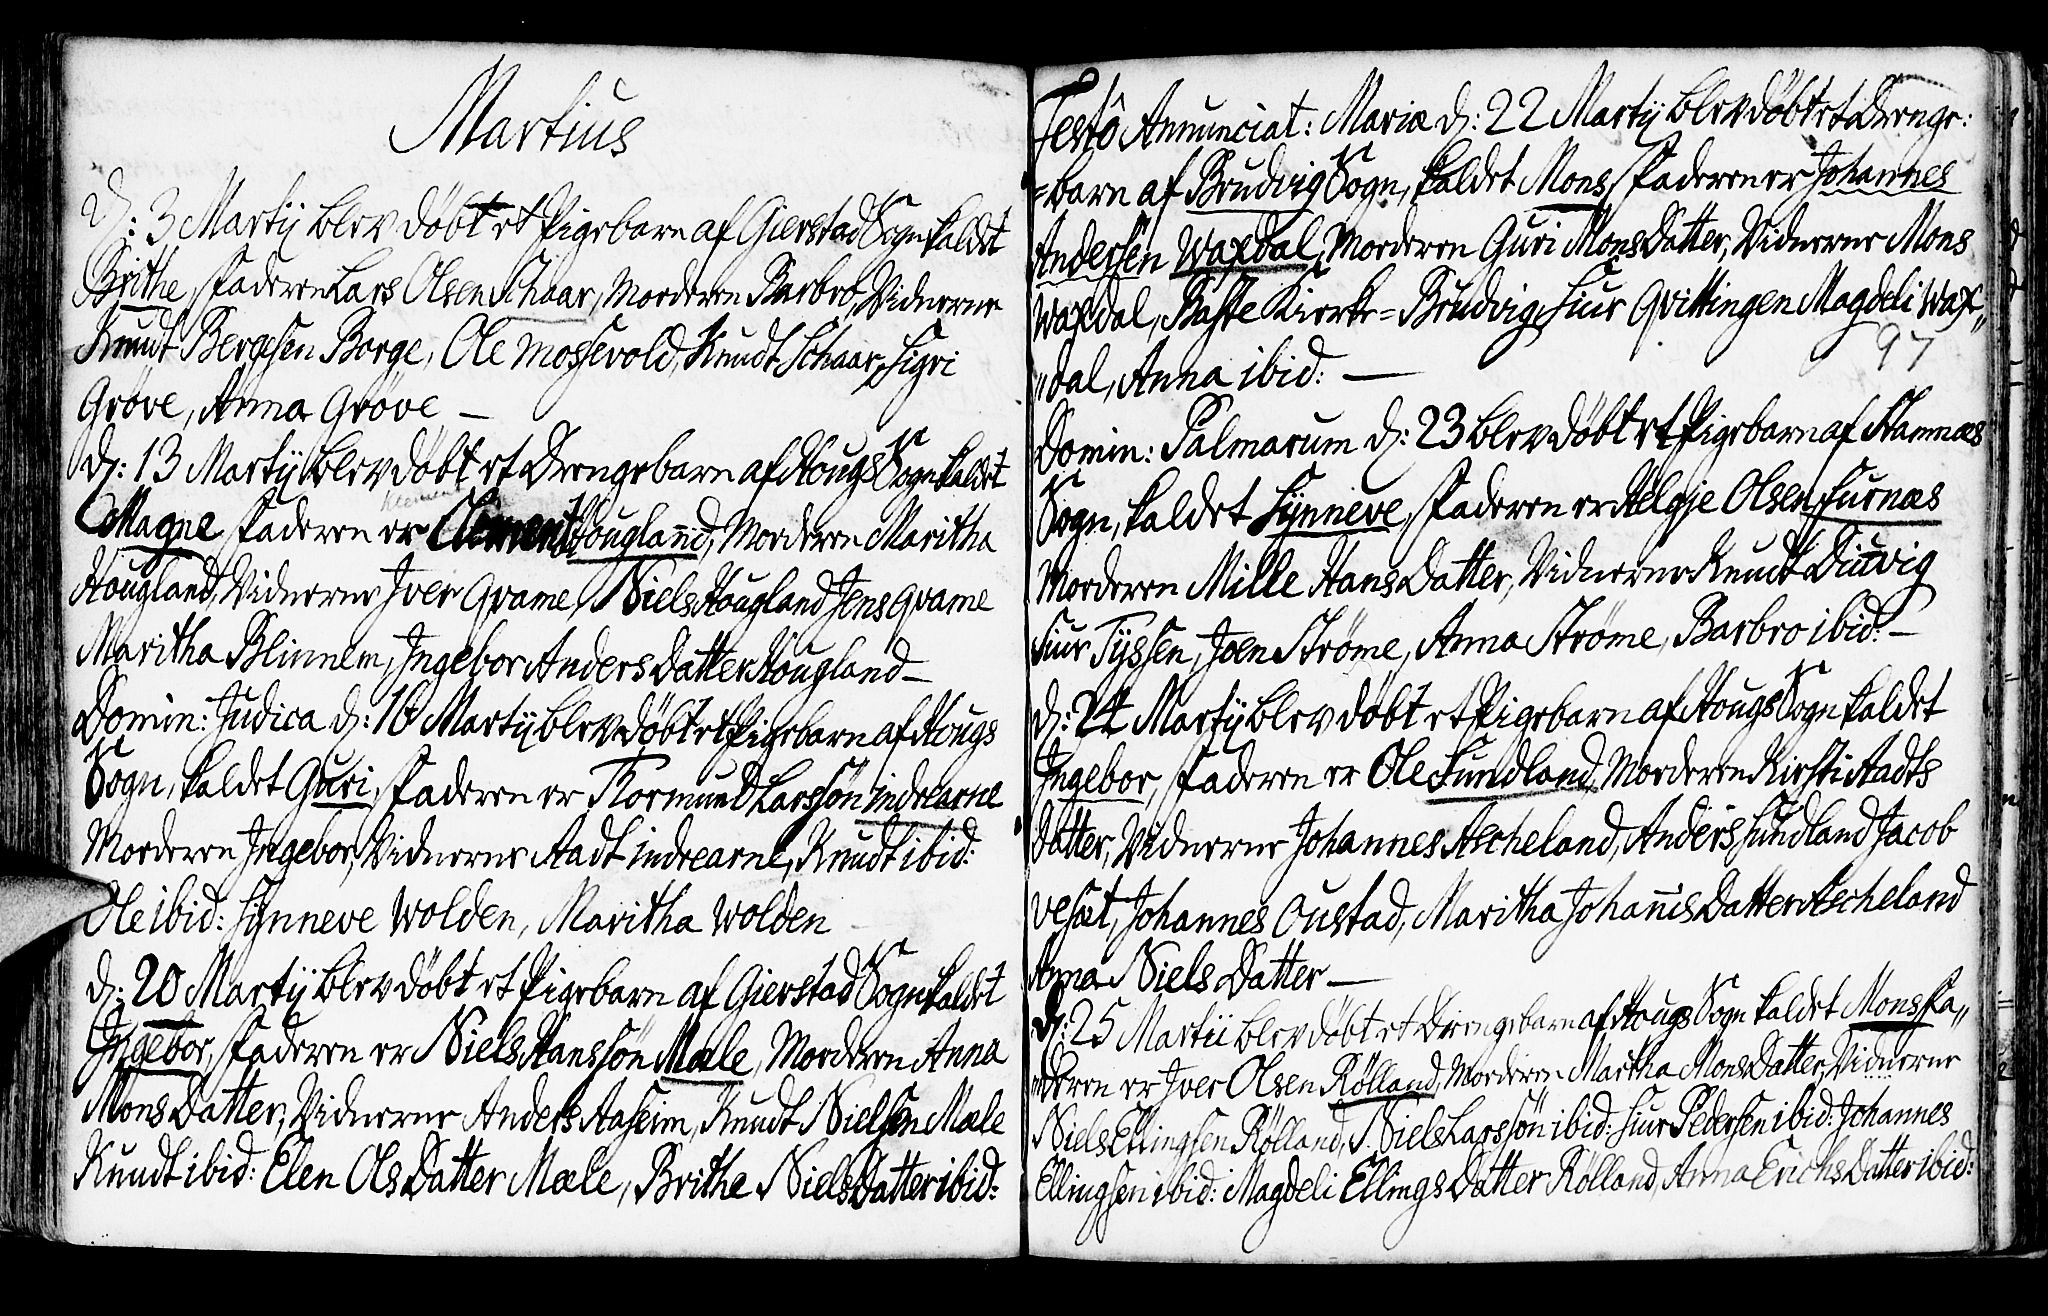 Martius
D: 3 Martij blev døbt et Pigebarn af Gierstad Sogn kaldet
Brithe, Faderen Lars Olsen Schaar, Moderen Barbro, Vidnerne
Knudt Bergesen Borge, Ole Mossevold, Knudt Schaar, Sigri
Grøve, Anna Grøve —
D: 13 Martij blev døbt et Drengebarn af Hougs Sogn kaldet
Klement
Magne Faderen er Clement Hougland, Moderen Maritha
Hougland, Vidnerne Iver Qvame, Niels Hougland Jens Qvame
Maritha Blinnem, Ingebor Anders Datter Hougland —
Domin: Judica d: 16 Martij blev døbt et Pigebarn af Hougs
Sogn, kaldet Guri, Faderen er Thormund Larssøn indrearne
Moderen Ingebor, Vidnerne Aadt indrearne, Knudt ibid:
Ole ibid: Synneve Wolden, Maritha Wolden
D: 20 Martij blev døbt et Pigebarn af Gierstad Sogn kaldet
Ingebor, Faderen er Niels Hanssøn Mæle, Moderen Anna
Mons Datter, Vidnerne Anders Aaseim, Knudt Nielsen Mæle
Knudt ibid: Elen Ols Datter Mæle, Brithe Niels Datter ibid:
Festô Annunciat: Mariæ d: 22 Martij blev døbt et Drenge:
=barn af Brudvig Sogn, kaldet Mons, Faderen er Johannes
Andersen Waxdal, Moderen Guri Mons Datter, Vidnerne Mons
Waxdal, Baste Kierke=Brudvig, Siur Qvittingen Magdeli Wax„
97
„dal, Anna ibid: —
Domin: Palmarum d: 23 blev døbt et Pigebarn af Stamnæs
Sogn, kaldet Synneve, Faderen er Helgje Olsen Furnæs
Moderen Mille Hans Datter, Vidnerne Knudt Dittvig
Siur Tyssen, Joen Strøme, Anna Strøme, Barbro ibid: —
d: 24 Martij blev døbt et Pigebarn af Hougs Sogn kaldet
Ingebor, Faderen er Ole Sundland, Moderen Kirsti Aadts
Datter, Vidnerne Johannes Ascheland, Anders Sundland Jacob
Vesæt, Johannes Oustad, Maritha Johannis Datter Ascheland
Anna Niels Datter —
D: 25 Martii blev døbt et Drengebarn af Hougs Sogn kaldet Mons Fa„
„deren er Iver Olsen Rølland, Moderen Martha Mons Datter, Vidnerne
Niels Ellingsen Rølland, Niels Larssøn ibid: Siur Pedersen ibid: Johannes
Ellingsen ibid: Magdeli Ellings Datter Rølland, Anna Erichs Datter ibid: